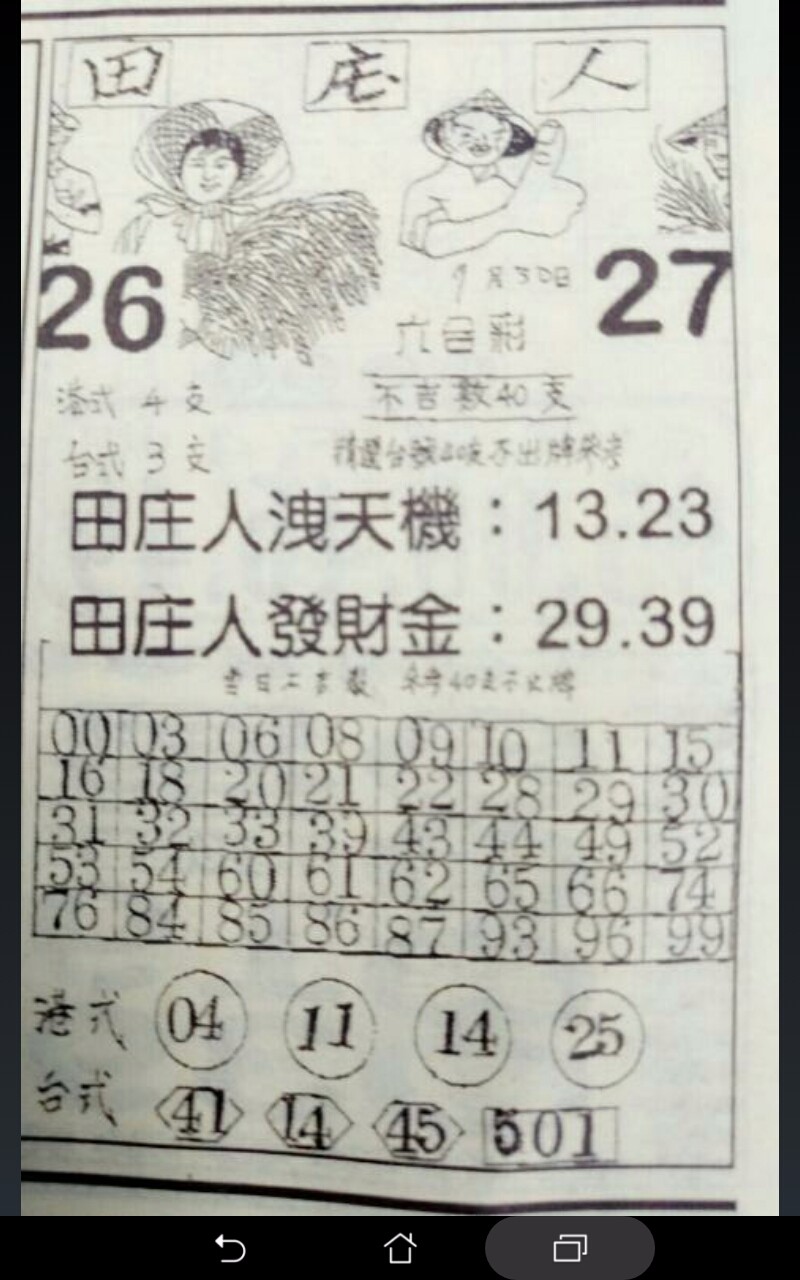 田 庄 人
26
27
9月30日
六合彩
港式 4 支
不吉數40支
台式 3 支
精選台號40支不出牌參考
田庄人洩天機：13.23
田庄人發財金：29.39
參考40支不出牌
00 03 06 08 09 10 11 15
16 18 20 21 22 28 29 30
31 32 33 39 43 44 49 52
53 54 60 61 62 65 66 74
76 84 85 86 87 93 96 99
港式 04 11 14 25
台式 41 14 45 501